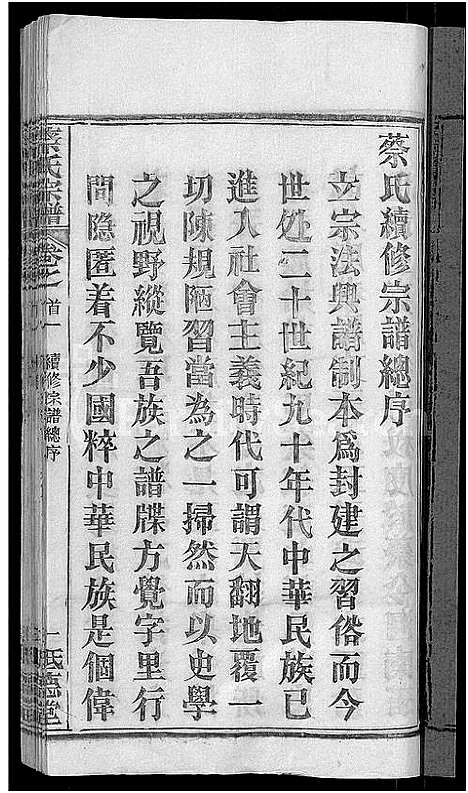 蔡氏續修宗譜總序
立宗法興譜制本爲封建之習俗而今
世处二十世紀九十年代中華民族已
進入社會主義時代可謂天翻地覆一
切陳規陋習當為之一掃然而以史學
之视野縱覽吾族之譜牒方覺字里行
間隐匿着不少國粹中華民族是個偉
蔡氏宗譜
卷之首
續修宗譜總序
一